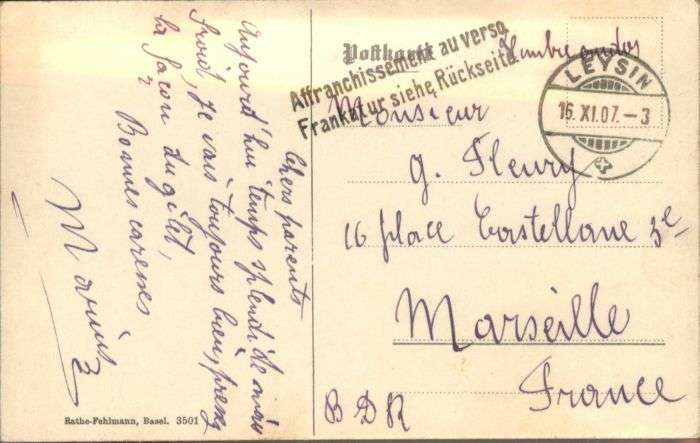 Postkarte
Timbre au dos
Affranchissement au verso
Frankatur siehe Rückseite
LEYSIN
16. XI. 07. - 3
Monsieur
G. Fleury
16 place Castellane 3e
Marseille
France
B D R
Chers parents
Aujourd'hui temps splendide mais
froid, je vais toujours bien, prenez
la façon du gilet,
Bonnes caresses
Marius
Rathe-Fehlmann, Basel. 3501